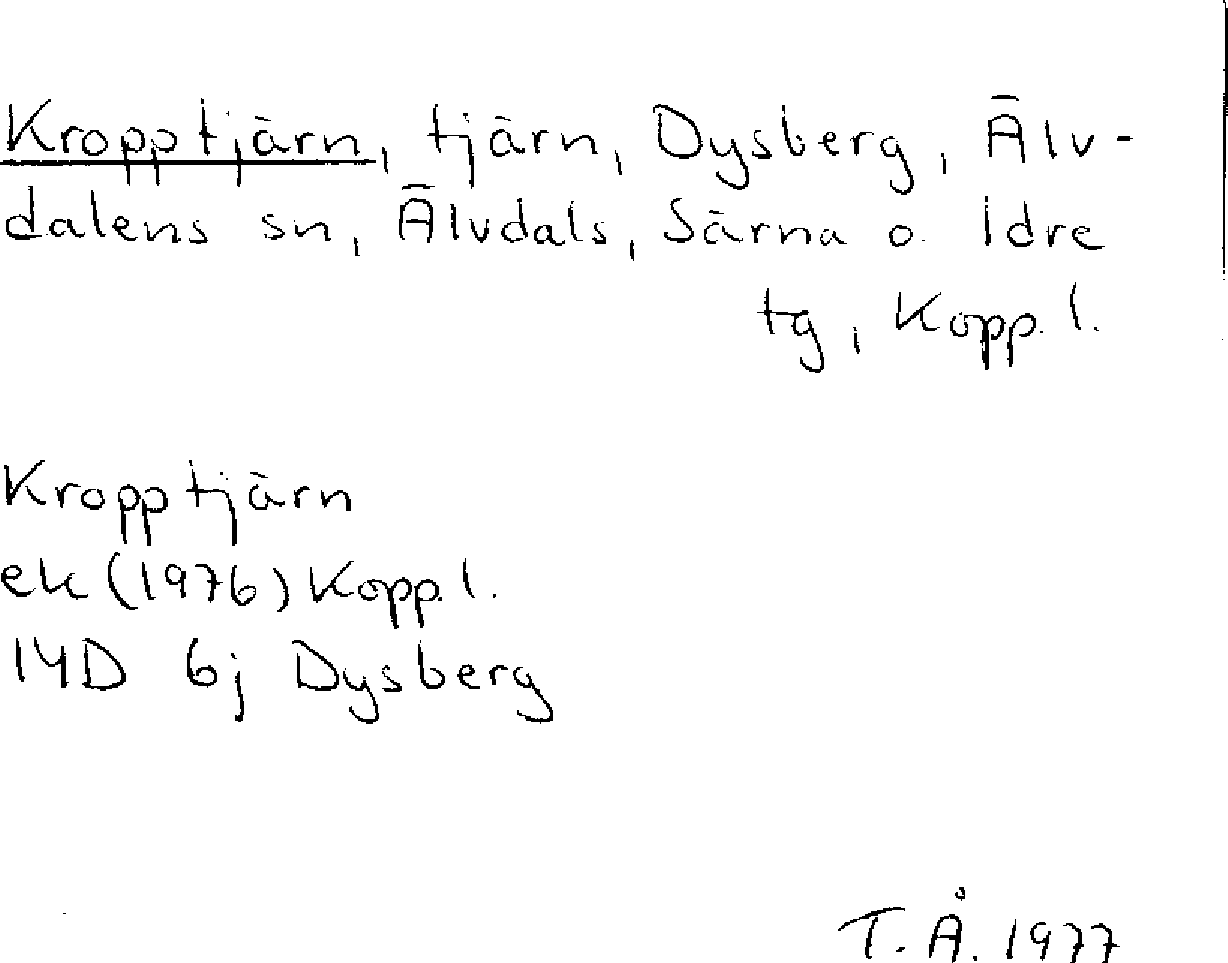 Kropptjärn, tjärn, Dysberg, Älv-
dalens sn, Älvdals, Särna o. Idre
tg, Kopp. l.
Kropptjärn
ek (1976) Kopp. l.
14D 6j Dysberg
T. Å. 1977